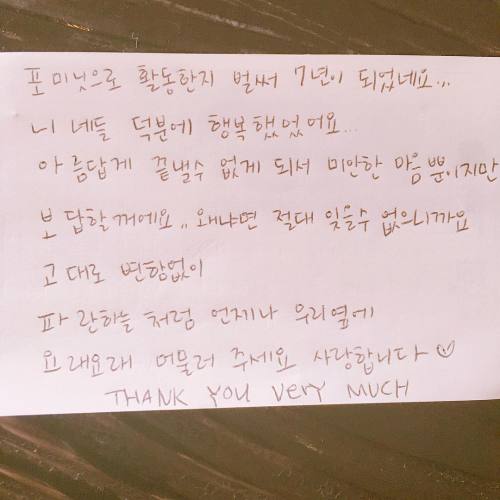 포미닛으로 활동한지 벌써 7년이 되었네요...
니네들 덕분에 행복했었어요...
아름답게 끝낼수 없게 되서 미안한 마음뿐이지만
보답할꺼에요.. 왜냐면 절대 잊을수 없으니까요
고대로 변함없이
파란하늘 처럼 언제나 우리옆에
요래요래 머물러 주세요 사랑합니다♡
THANK YOU VERY MUCH